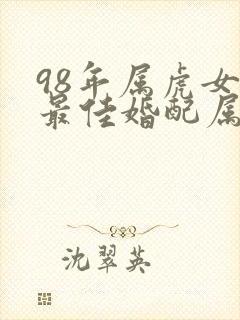 98年属虎女
最佳婚配属
沈翠英